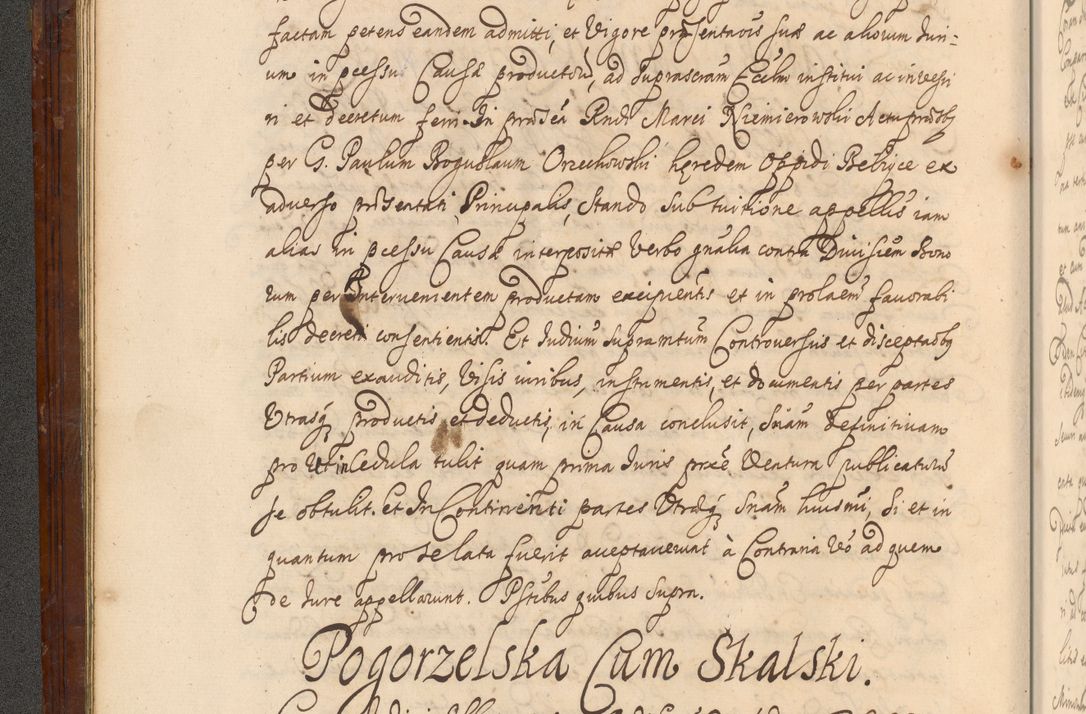 factam petens eandem admitti, et Vigore præsentaõis suæ ac aliorum Iuri-
um in pcessu Causæ productorũ, ad supraseram Ecclm institui ac investi
ri et decretum ferri. In prñtia Rndi Marci Niemierowski Actu prñtibq
per G. Paulum Boguslaum Orzechowski hęredem Oppidi Bełżyce ex
adverso prñsentati, Principalis, stando sub tuitione appellis iam
alias in pcessu Causæ interpositæ Verbo gnalia contra Divisiem Bono
rum per Intervenientem productam excipientis et in prolaem favorabi
lis decreti consentientis. Et Iudium supramtum Controversus et disceptaõbq
Partium exauditis, Visis iuribus, instrumentis, et documentis per partes
Utrasq. productis et deductis, in Causa conclusit, Snam definitivam
pro Ut in Cedula tulit quam prima Iuris prxe Ventura publicaturũ
se obtulit. et In Continenti partes Utræq. Snam huiusmi, si et in
quantum pro se lata fuerit acceptaverunt à Contraria Vo ad quem
de Iure appellarunt. Pstibus quibus supra.
Pogorzelska Cum Skalski.